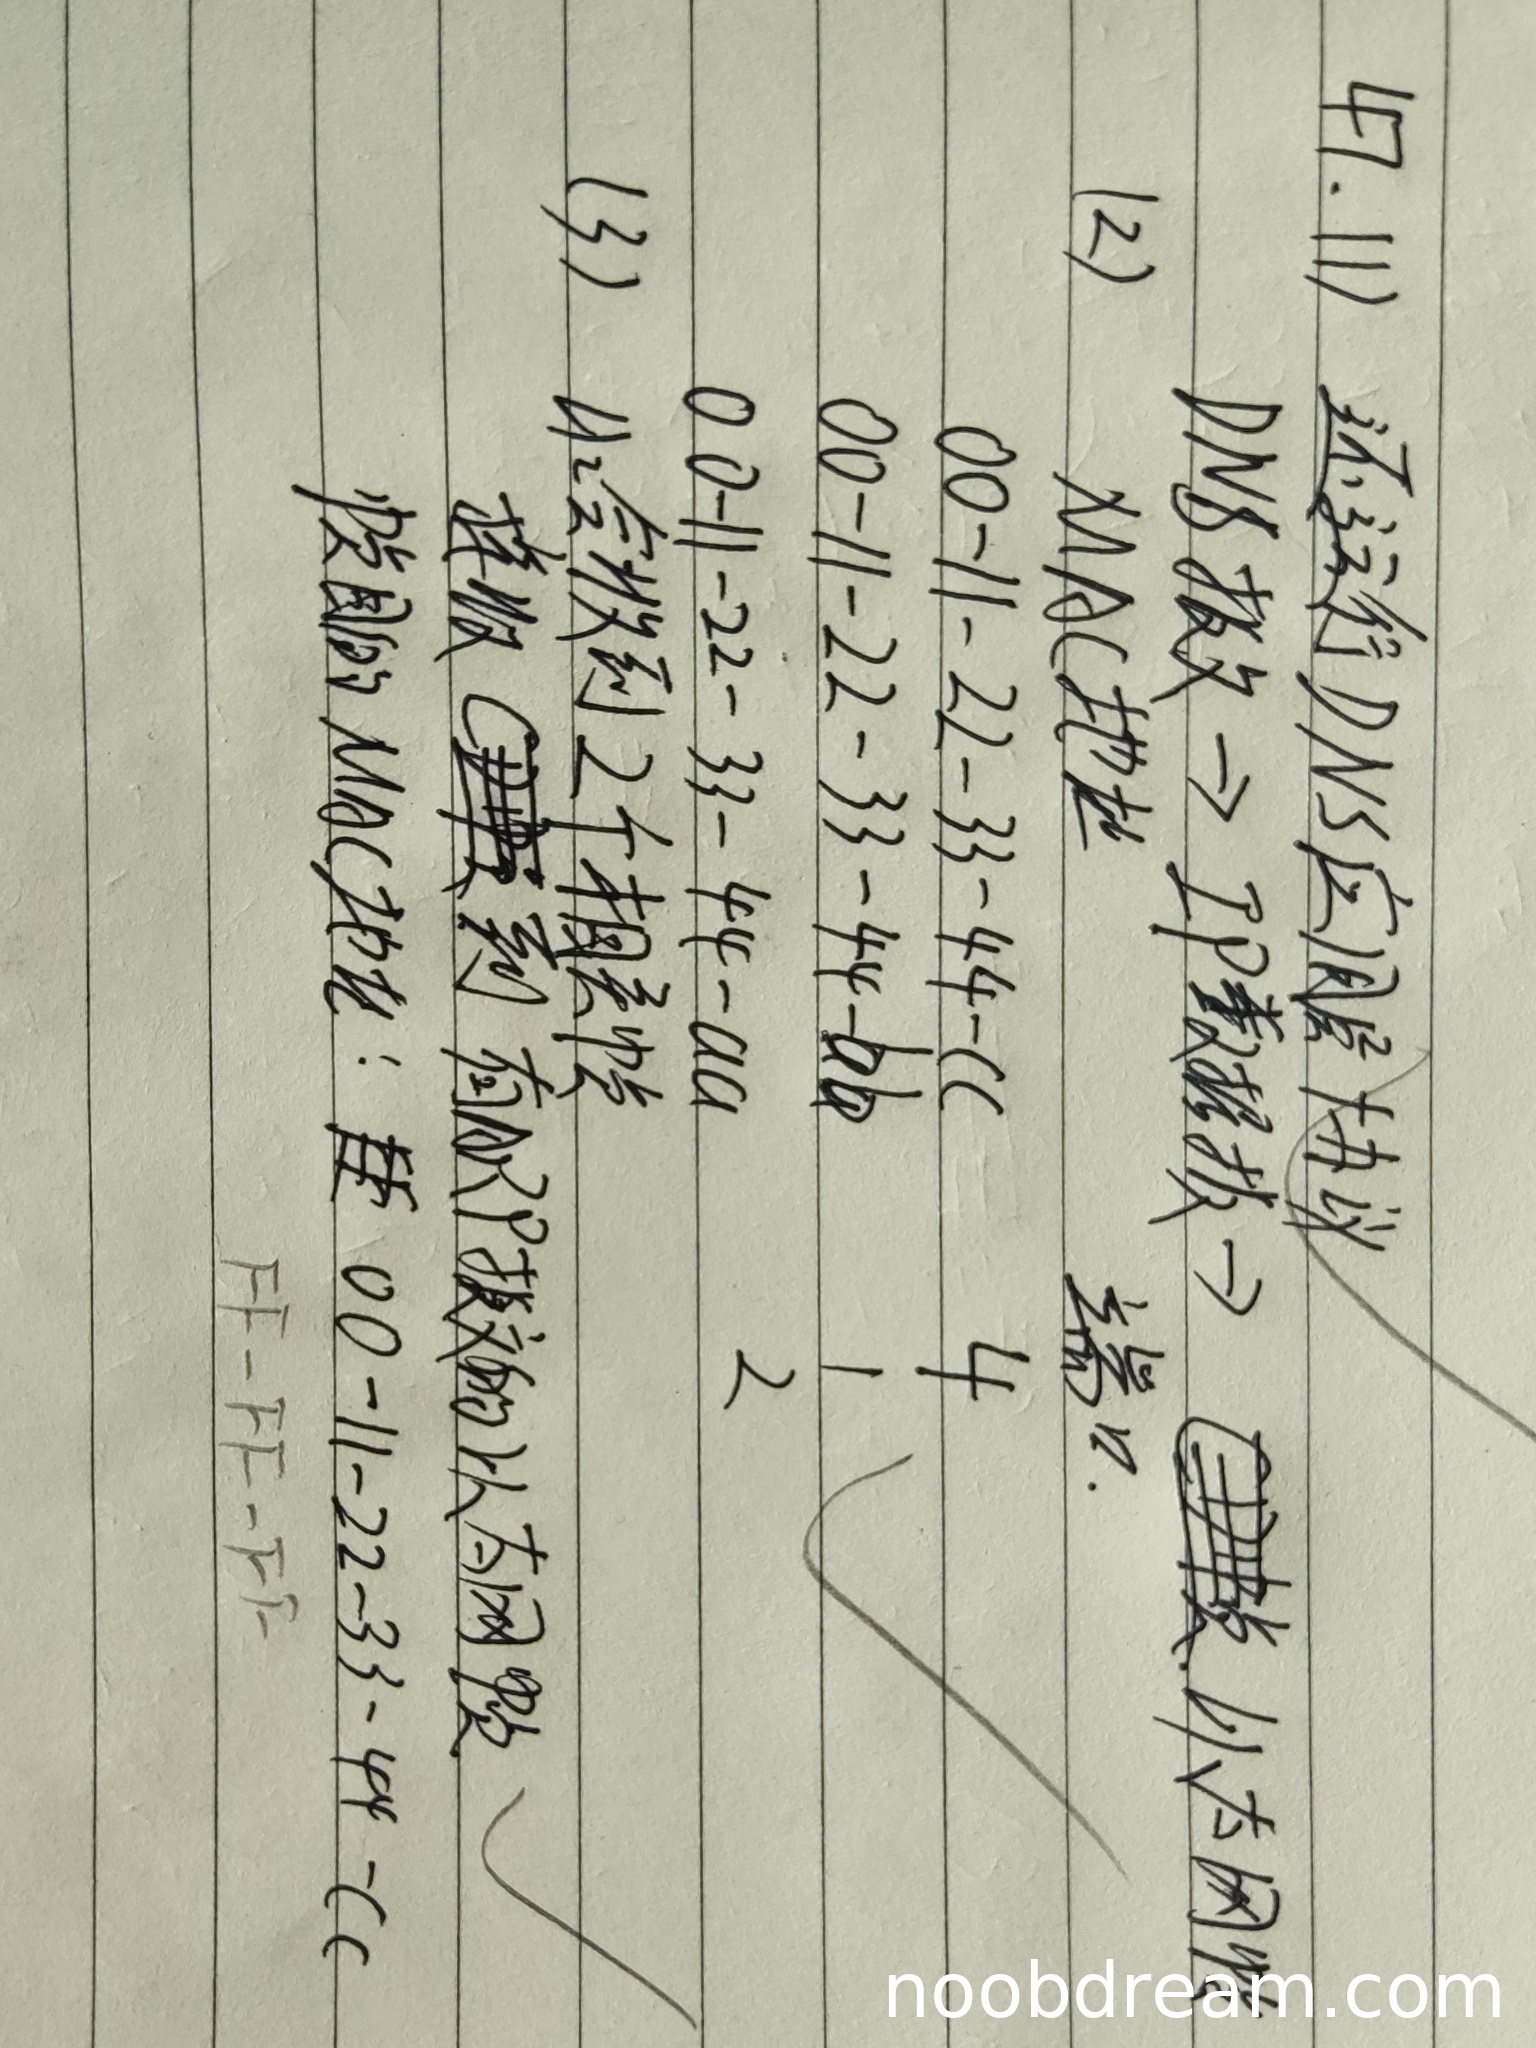 47.(1) 还运行DNS应用层协议
DNS报文→IP数据报→ 以太网帧
(2) MAC地址 端口.
00-11-22-33-44-cc 4
00-11-22-33-44-bb 1
00-11-22-33-44-aa 2
(3) H2会收到2个相关帧
接收到封DNS报文的以太网帧
目的MAC地址: 00-11-22-33-44-cc
FF-FF-FF
noobdream.com